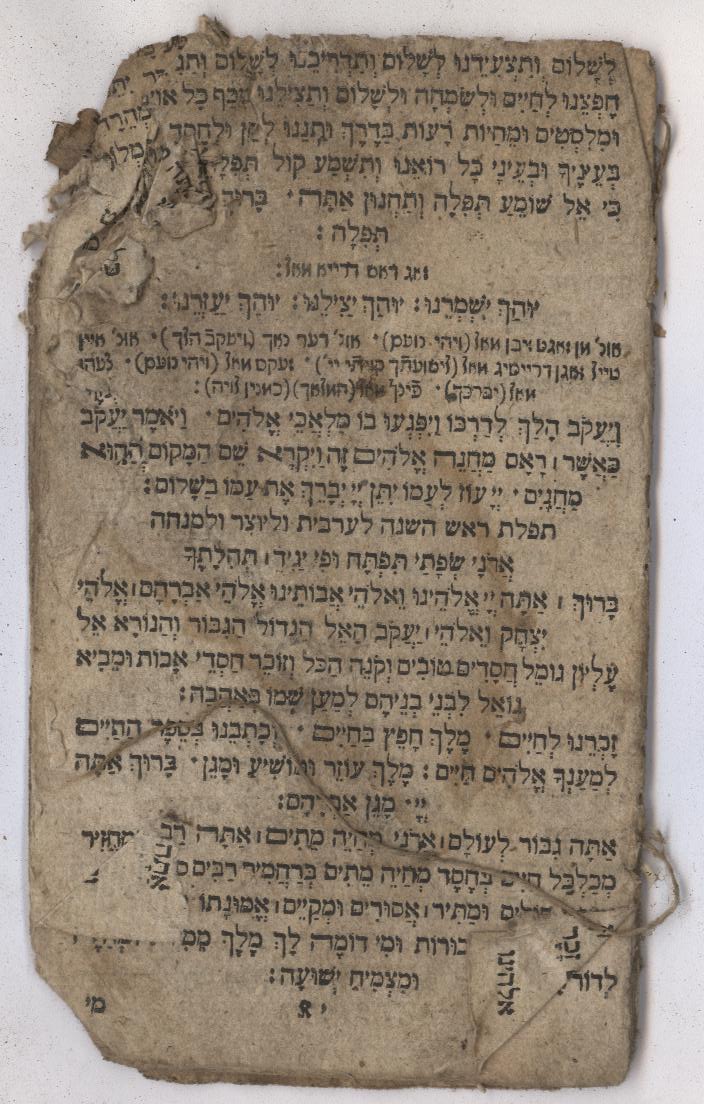 לְשָׁלוֹם וְתַצְעִידֵנוּ לְשָׁלוֹם וְתַדְרִיכֵנוּ לְשָׁלוֹם
חֶפְצֵנוּ לְחַיִּים וּלְשִׂמְחָה וּלְשָׁלוֹם וְתַצִּילֵנוּ מִכַּף כָּל
וּמִלִסְטִים וּמֵחַיּוֹת רָעוֹת בַּדֶּרֶךְ וּתְנֵנוּ לְחֵן וּלְחֶסֶד
בְּעֵינֶיךָ וּבְעֵינֵי כָל רוֹאֵנוּ וְתִשְׁמַע קוֹל
כִּי אֵל שׁוֹמֵעַ תְּפִלָּה וְתַחֲנוּן אַתָּה׃ בָּרוּךְ
תְּפִלָּה׃
זאג דאס דרייא מאל׃
יוֹהָךְ יִשְׁמְרֵנוּ׃ יוֹהָךְ יַצִּילֵנוּ׃ יוֹהָךְ יַעַזְרֵנוּ׃
זיבן מאל (ויהי נועם)׃ אונ׳ דער נאך (ויעקב הלך)׃ אונ׳
דרייסיג מאל (לישועתך קויתי יי׳)׃
מאל (יברכך)׃
וְיַעֲקֹב הָלַךְ לְדַרְכּוֹ וַיִּפְגְּעוּ בוֹ מַלְאֲכֵי אֱלֹהִים׃ וַיֹּאמֶר יַעֲקֹב
כַּאֲשֶׁר׀ רָאָם מַחֲנֵה אֱלֹהִים זֶה וַיִּקְרָא שֵׁם הַמָּקוֹם הַהוּא
מַחֲנַיִם׃ יְיָ עוֹז לְעַמּוֹ יִתֵּן יְיָ יְבָרֵךְ אֶת עַמּוֹ בַשָּׁלוֹם׃
תפלת ראש השנה לערבית וליוצר ולמנחה
אֲדֹנָי שְׂפָתַי תִּפְתָּח וּפִי יַגִּיד׀ תְּהִלָּתֶךָ
בָּרוּךְ׀ אַתָּה יְיָ אֱלֹהֵינוּ וֵאלֹהֵי אֲבוֹתֵינוּ אֱלֹהֵי אַבְרָהָם׀ אֱלֹהֵי
יִצְחָק וֵאלֹהֵי׀ יַעֲקֹב הָאֵל הַגָּדוֹל הַגִּבּוֹר וְהַנּוֹרָא אֵל
עֶלְיוֹן גּוֹמֵל חֲסָדִים טוֹבִים וְקֹנֵה הַכֹּל וְזוֹכֵר חַסְדֵי אָבוֹת וּמֵבִיא
גוֹאֵל לִבְנֵי בְנֵיהֶם לְמַעַן שְׁמוֹ בְּאַהֲבָה׃
זָכְרֵנוּ לְחַיִּים׃ מֶלֶךְ חָפֵץ בַּחַיִּים׃ וְכָתְבֵנוּ בְּסֵפֶר הַחַיִּים
לְמַעַנְךָ אֱלֹהִים חַיִּים׃ מֶלֶךְ עוֹזֵר וּמוֹשִׁיעַ וּמָגֵן׃ בָּרוּךְ אַתָּה
יְיָ׃ מָגֵן אַבְרָהָם׃
אַתָּה גִבּוֹר לְעוֹלָם׀ אֲדֹנָי מְחַיֵּה מֵתִים׀ אַתָּה רַב
מְכַלְכֵּל חַיִּים בְּחֶסֶד מְחַיֵּה מֵתִים בְּרַחֲמִים רַבִּים
חוֹלִים וּמַתִּיר׀ אֲסוּרִים וּמְקַיֵּם׀ אֱמוּנָתוֹ
וּמִי דוֹמֶה לָךְ מֶלֶךְ
אלהינו
לְדוֹר
וּמַצְמִיחַ יְשׁוּעָה׃
מי